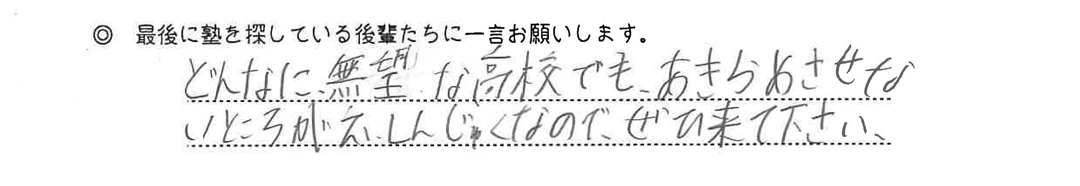 ◎ 最後に塾を探している後輩たちに一言お願いします。
どんなに、無望な高校でも、あきらめさせな
いところがえいしんじゅくなので、ぜひ来て下さい、